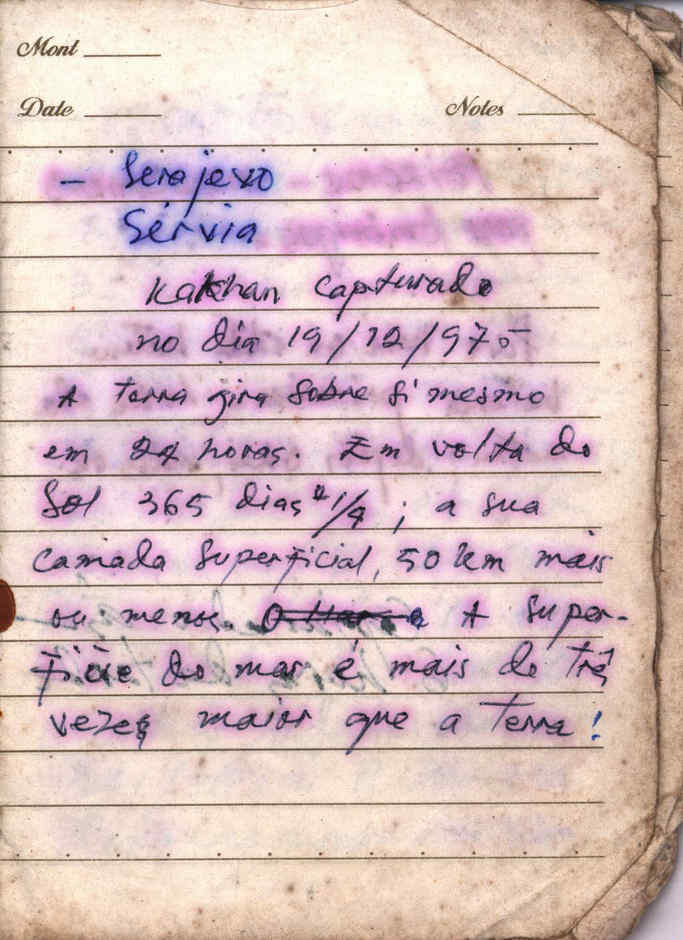 Mont
Date
Notes
- Serajevo
Sérvia
Kalchan capturado
no dia 19/12/975
A terra gira sobre si mesmo
em 24 horas. Em volta do
Sol 365 dias 1/4; a sua
camada superficial, 50 km mais
ou menos. A super-
fície do mar é mais de três
vezes maior que a terra!